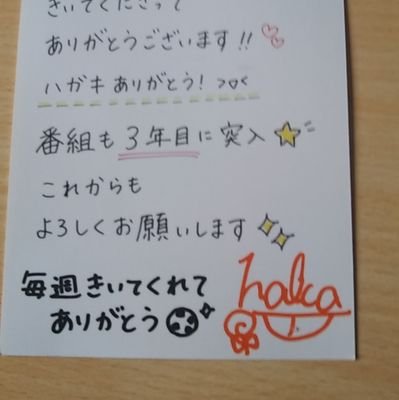 きいてくださって
ありがとうございます!!
ハガキ ありがとう! >▽<
番組も 3年目に突入
これからも
よろしくお願いします
毎週きいてくれて
ありがとう
haluca